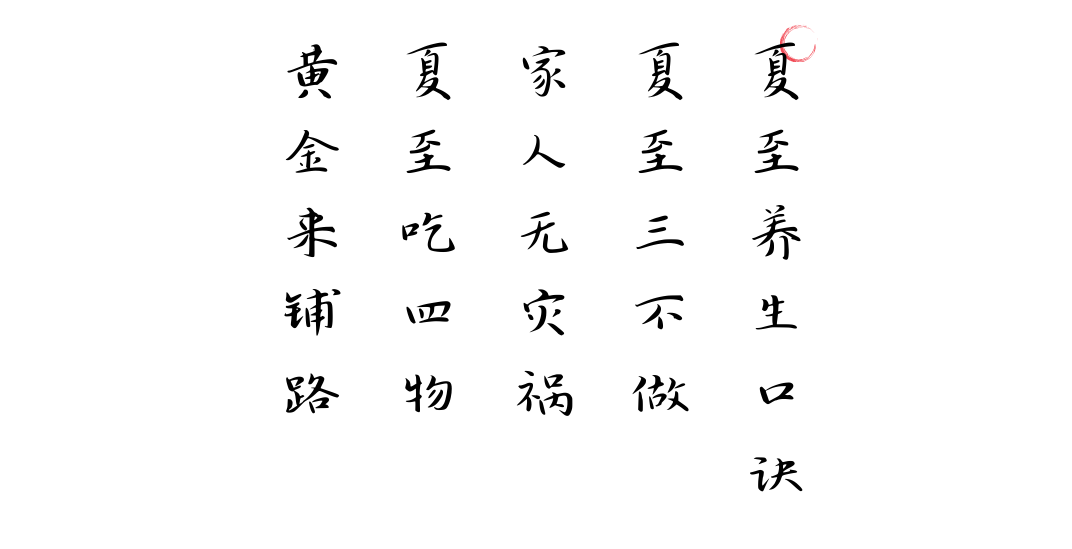 夏至养生口诀
夏至三不做
家人无灾祸
夏至吃四物
黄金来铺路